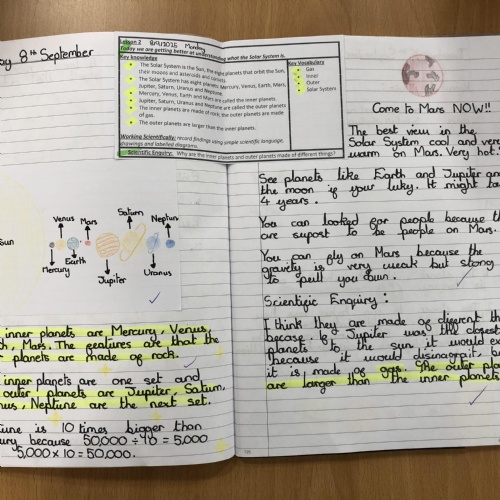 ay 8th September
Lesson 2 8/9/2025 Monday
Today we are getting better at understanding what the Solar System is.
Key knowledge
The Solar System is the Sun, the eight planets that orbit the Sun,
their moons and asteroids and comets.
The Solar System has eight planets, Mercury, Venus, Earth, Mars,
Jupiter, Saturn, Uranus and Neptune.
Mercury, Venus, Earth and Mars are called the inner planets.
Jupiter, Saturn, Uranus and Neptune are called the outer planets
The inner planets are made of rock, the outer planets are made
of gas.
The outer planets are larger than the inner planets.
Working Scientifically: record findings using simple scientific language,
drawings and labelled diagrams.
Scientific Enquiry: Why are the inner and outer planets made of different things?
Key Vocabulary
Gas
Inner
Outer
Solar System
Sun
Venus
Mars
Saturn
Neptun
Mercury
Earth
Jupiter
Uranus
inner planets are Mercury, Venus,
h, Mars. The features are that the
r planets are made of rock.
inner planets are one set and
outer planets are Jupiter, Saturn,
nus, Neptune are the next set.
tune is 10 times bigger than
ury because 50,000 ÷ 10 = 5,000
5,000 x 10 = 50,000.
Come to Mars NOW!!
The best view in the
Solar System cool and very
warm on Mars. Very hot.
See planets like Earth and Jupiter an
the moon if your luky. It might ta
4 years.
You can looked for people because th
are supost to be people on Mars.
You can fly on Mars because the
gravity is very weak but stong
to pull you down.
Scientific Enquiry:
I think they are made of diferent th
becase. If Jupiter was the closest
planets to the sun it would ex
because it would disinarpit, b
it is made of gas. The outer plan
are larger than the inner planets